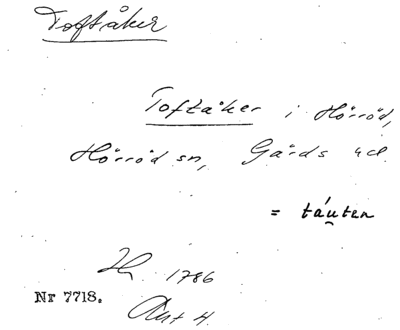 Toftåker
Toftåker i Hörröd,
Hörröd sn, Gärds hd.
= táuten
1786
Nr 7718.
Akt 4.